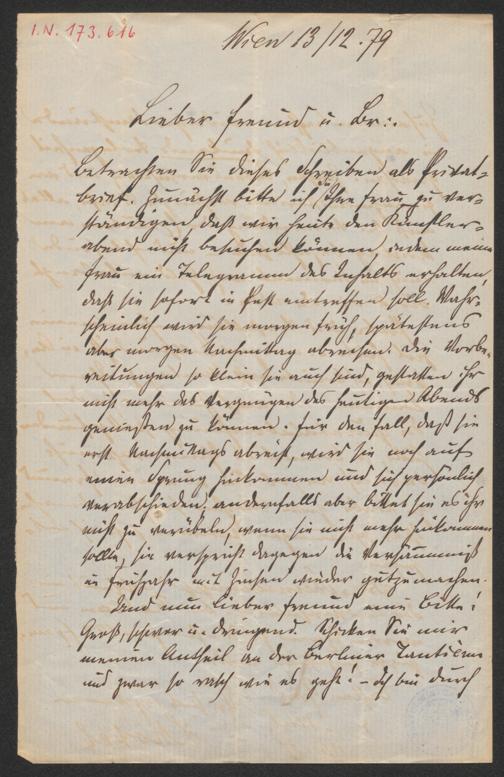 I.N. 173.616
Wien 13/12.79
Lieber Freund u. Br:.
Betrachten Sie dieses Schreiben als Privat-
brief. Zunächst bitte ich Ihre Frau zu ver-
ständigen daß wir heute den Künstler-
abend nicht besuchen können indem meine
Frau ein Telegramm des Inhalts erhalten,
daß sie sofort in Pest eintreffen soll. Wahr-
scheinlich wird sie morgen früh, spätestens
aber morgen Nachmittag abreisen. Die Vorbe-
reitungen so klein sie auch sind, gestatten ihr
nicht mehr das Vergnügen des heutigen Abends
genießen zu können. Für den Fall, daß sie
erst Nachmittags abreist, wird sie noch auf
einen Sprung hinkommen und sich persönlich
verabschieden, andernfalls aber bittet sie es ihr
nicht zu verübeln, wenn sie nicht mehr hinkommen
sollte, sie verspricht dagegen die Versäumniß
im Frühjahr mit Zinsen wieder gutzumachen.
Und nun lieber Freund eine Bitte!
Groß, schwer u. dringend. Schicken Sie mir
meinen Antheil an der Berliner Tantième
und zwar so rasch wie es geht! – Ich bin durch